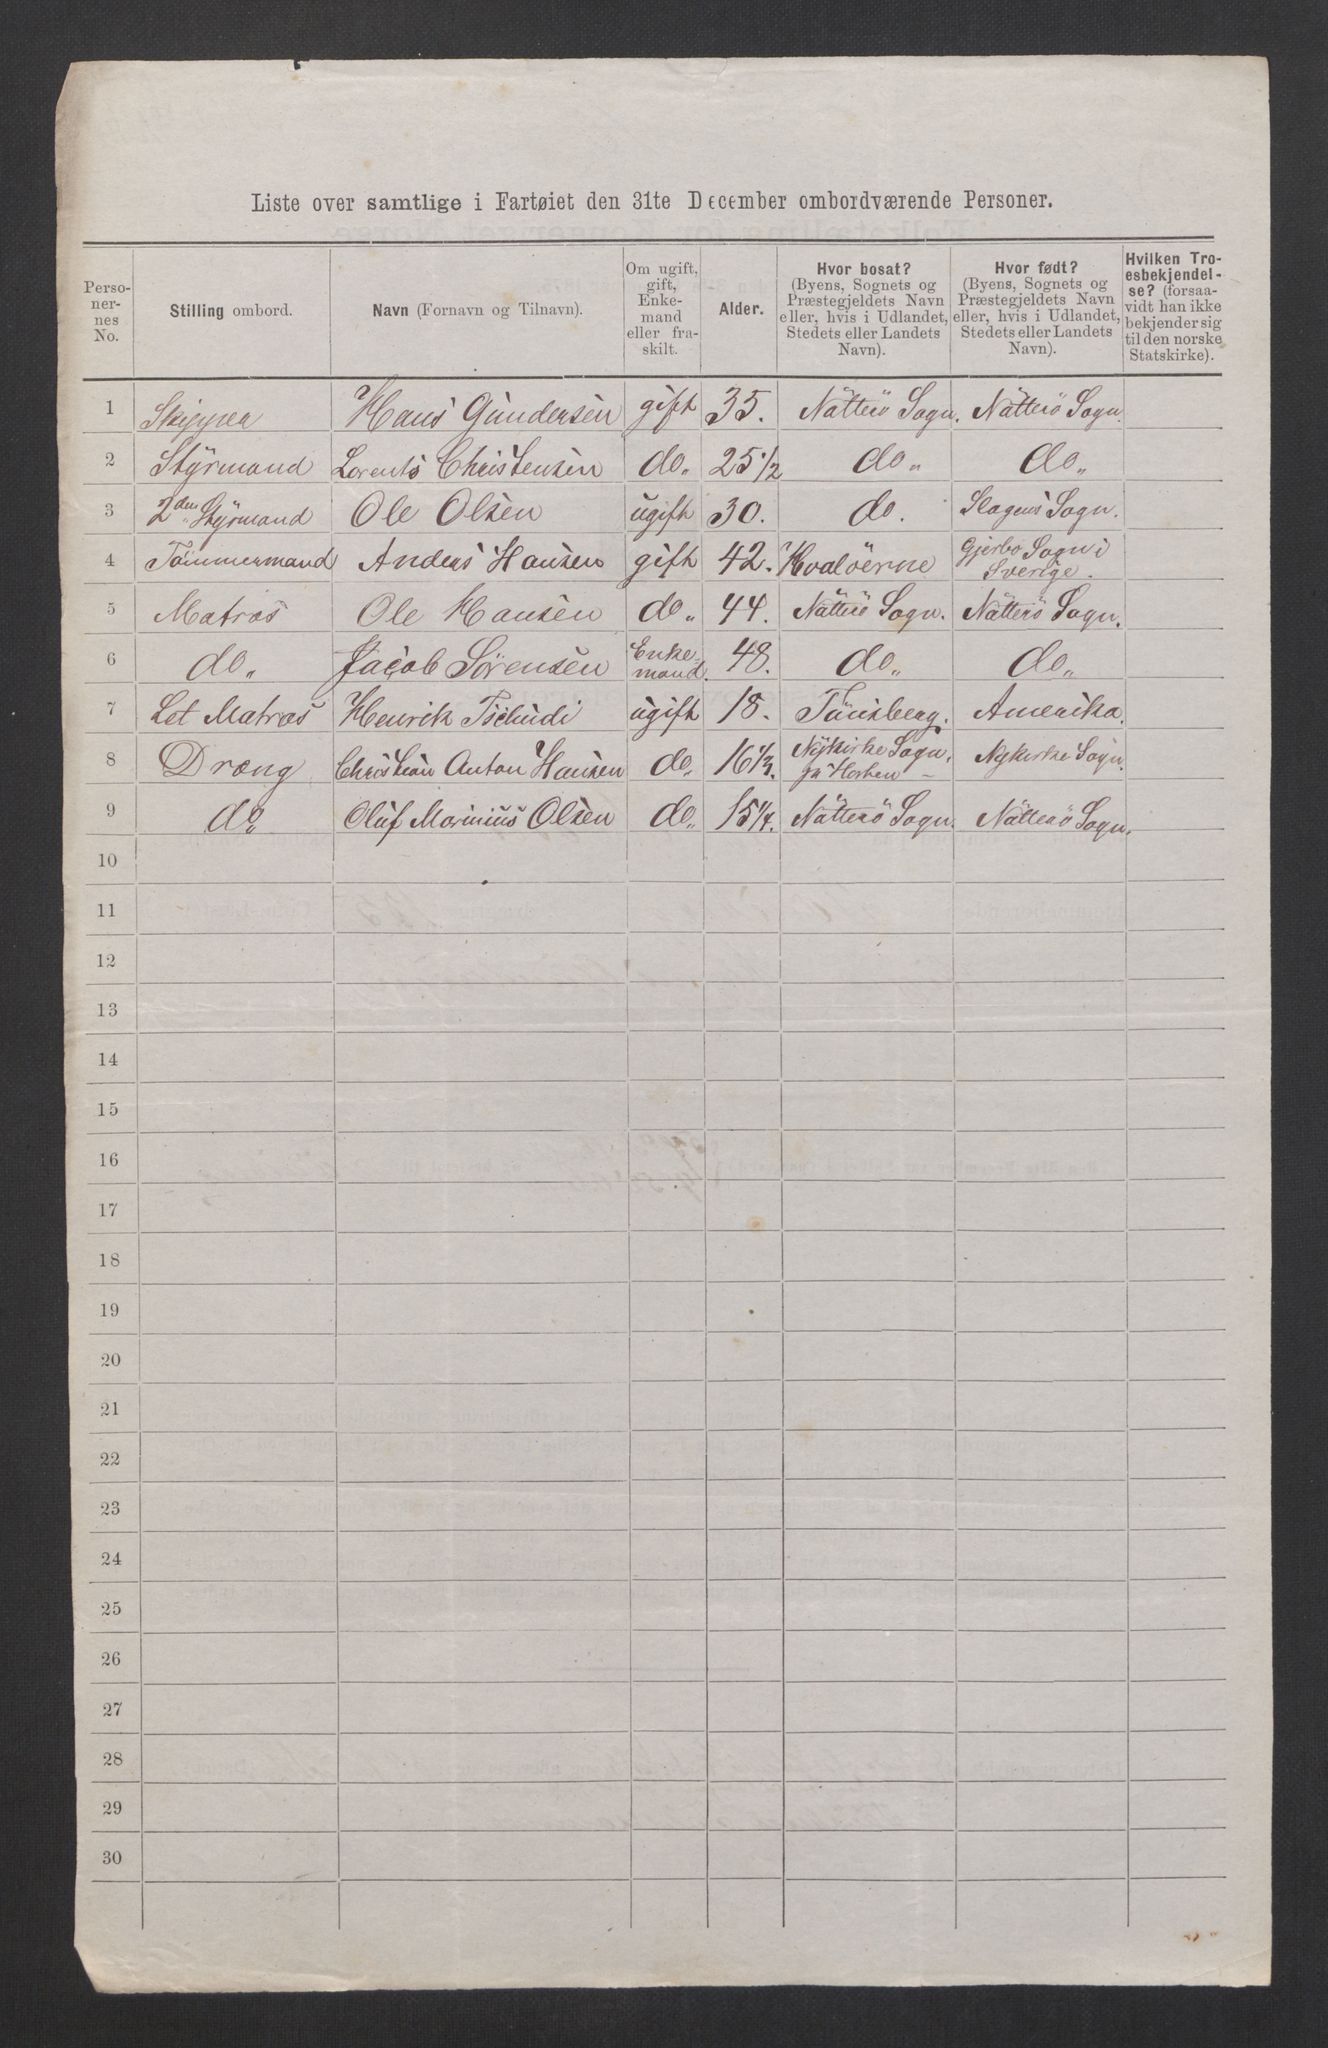 Liste over samtlige i Fartøiet den 31te December ombordværende Personer.
Perso-
ner-
nes
No.
Stilling ombord.
Navn (Fornavn og Tilnavn).
Om ugift,
gift,
Enke-
mand
eller fra-
skilt.
Alder.
Hvor bosat?
(Byens, Sognets og
Præstegjeldets Navn
eller, hvis i Udlandet,
Stedets eller Landets
Navn).
Hvor født?
(Byens, Sognets og
Præstegjeldets Navn
eller, hvis i Udlandet,
Stedets eller Landets
Navn).
Hvilken Tro-
esbekjendel-
se? (forsaa-
vidt han ikke
bekjender sig
til den norske
Statskirke).
1 Skipper Hans Gundersen gift 35. Nötterö Sogn. Nötterö Sogn.
2 Styrmand Lorents Christensen do„ 25 1/2 do„ do„
3 2den Styrmand Ole Olsen ugift 30. do. Slagens Sogn.
4 Tömmermand Anders Hansen gift 42. Hvalöerne Gjerbo Sogn i
Sverige.
5 Matros Ole Hansen do„ 44. Nötterö Sogn. Nötterö Sogn.
6 do„ Jacob Sørensen Enke-
mand. 48. do„ do„
7 Let Matros Henrik Tschudi ugift 18. Tönsberg. Amerika.
8 Dræng Christian Anton Hansen do„ 16 1/3. Nykirke Sogn. Nykirke Sogn.
pr Horten
9 do„ Oluf Marinius Olsen do„ 15 1/4. Nötterö Sogn. Nötterö Sogn.
10
11
12
13
14
15
16
17
18
19
20
21
22
23
24
25
26
27
28
29
30